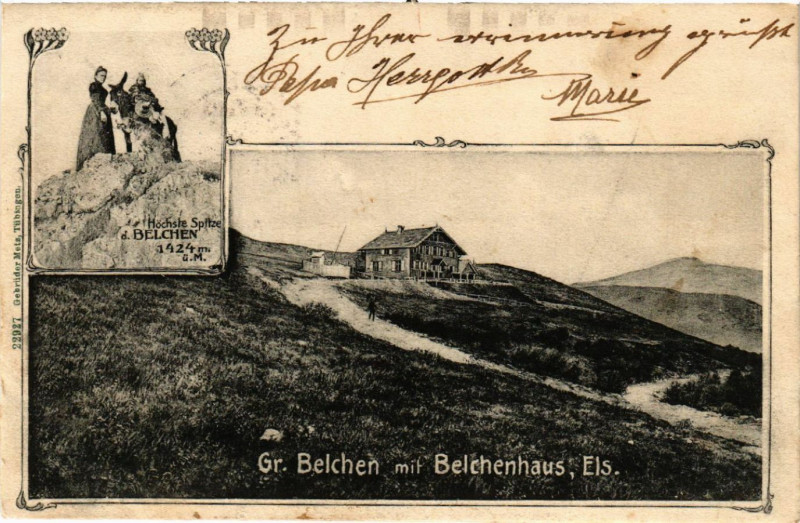 Zu Ihrer errinnerung grüßt
Papa Herrgott
Marie
Höchste Spitze
d. BELCHEN
1424 m.
ü. M.
22927 Gebrüder Metz, Tübingen.
Gr. Belchen mit Belchenhaus, Els.